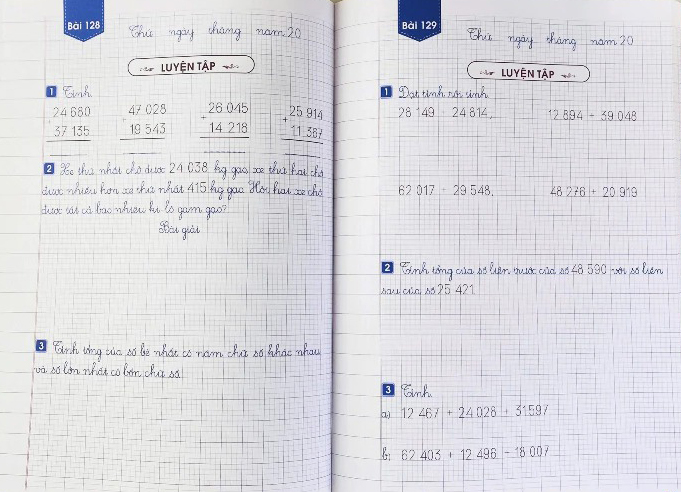 Bài 128
Thứ ngày tháng năm 20
LUYỆN TẬP
1 Tính
24 680 + 47 028 + 26 045 + 25 914
37 135 19 543 14 218 11 367
2 Xe thứ nhất chở được 24 038 kg gạo, xe thứ hai chở
được nhiều hơn xe thứ nhất 415 kg gạo. Hỏi hai xe chở
được tất cả bao nhiêu ki lô gam gạo?
Bài giải
3 Tính tổng của số bé nhất có năm chữ số khác nhau
và số lớn nhất có bốn chữ số.
Bài 129
Thứ ngày tháng năm 20
LUYỆN TẬP
1 Đặt tính rồi tính
28 149 + 24 814, 12 894 + 39 048
62 017 + 29 548, 48 276 + 20 919
2 Tính tổng của số liền trước của số 48 590 với số liền
sau của số 25 421.
3 Tính.
a) 12 467 + 24 028 + 31597
b) 62 403 + 12 496 + 18 007